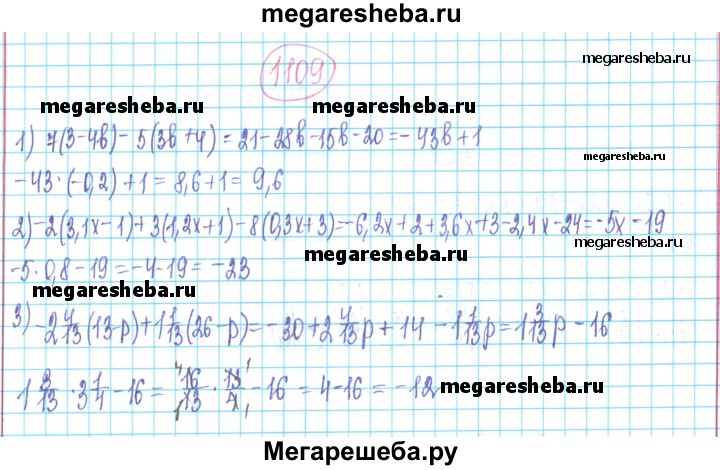 megaresheba.ru
1109
megaresheba.ru
megaresheba.ru megaresheba.ru
1) 7(3-4b)-5(3b+4)=21-28b-15b-20=-43b+1
megaresheba.ru
-43·(-0,2)+1=8,6+1=9,6
2)-2(3,1x-1)+3(1,2x+1)-8(0,3x+3)=-6,2x+2+3,6x+3-2,4x-24=-5x-19
megaresheba.ru
megaresheba.ru
-5·0,8-19=-4-19=-23
megaresheba.ru
megaresheba.ru
3) -2 4/13(13-p)+1 1/13(26-p)=-30+2 4/13p+14-1 1/13p=1 3/13p-16
1 3/13·3 1/4-16=16/13·13/4-16=4-16=-12
megaresheba.ru
Мегарешеба.ру